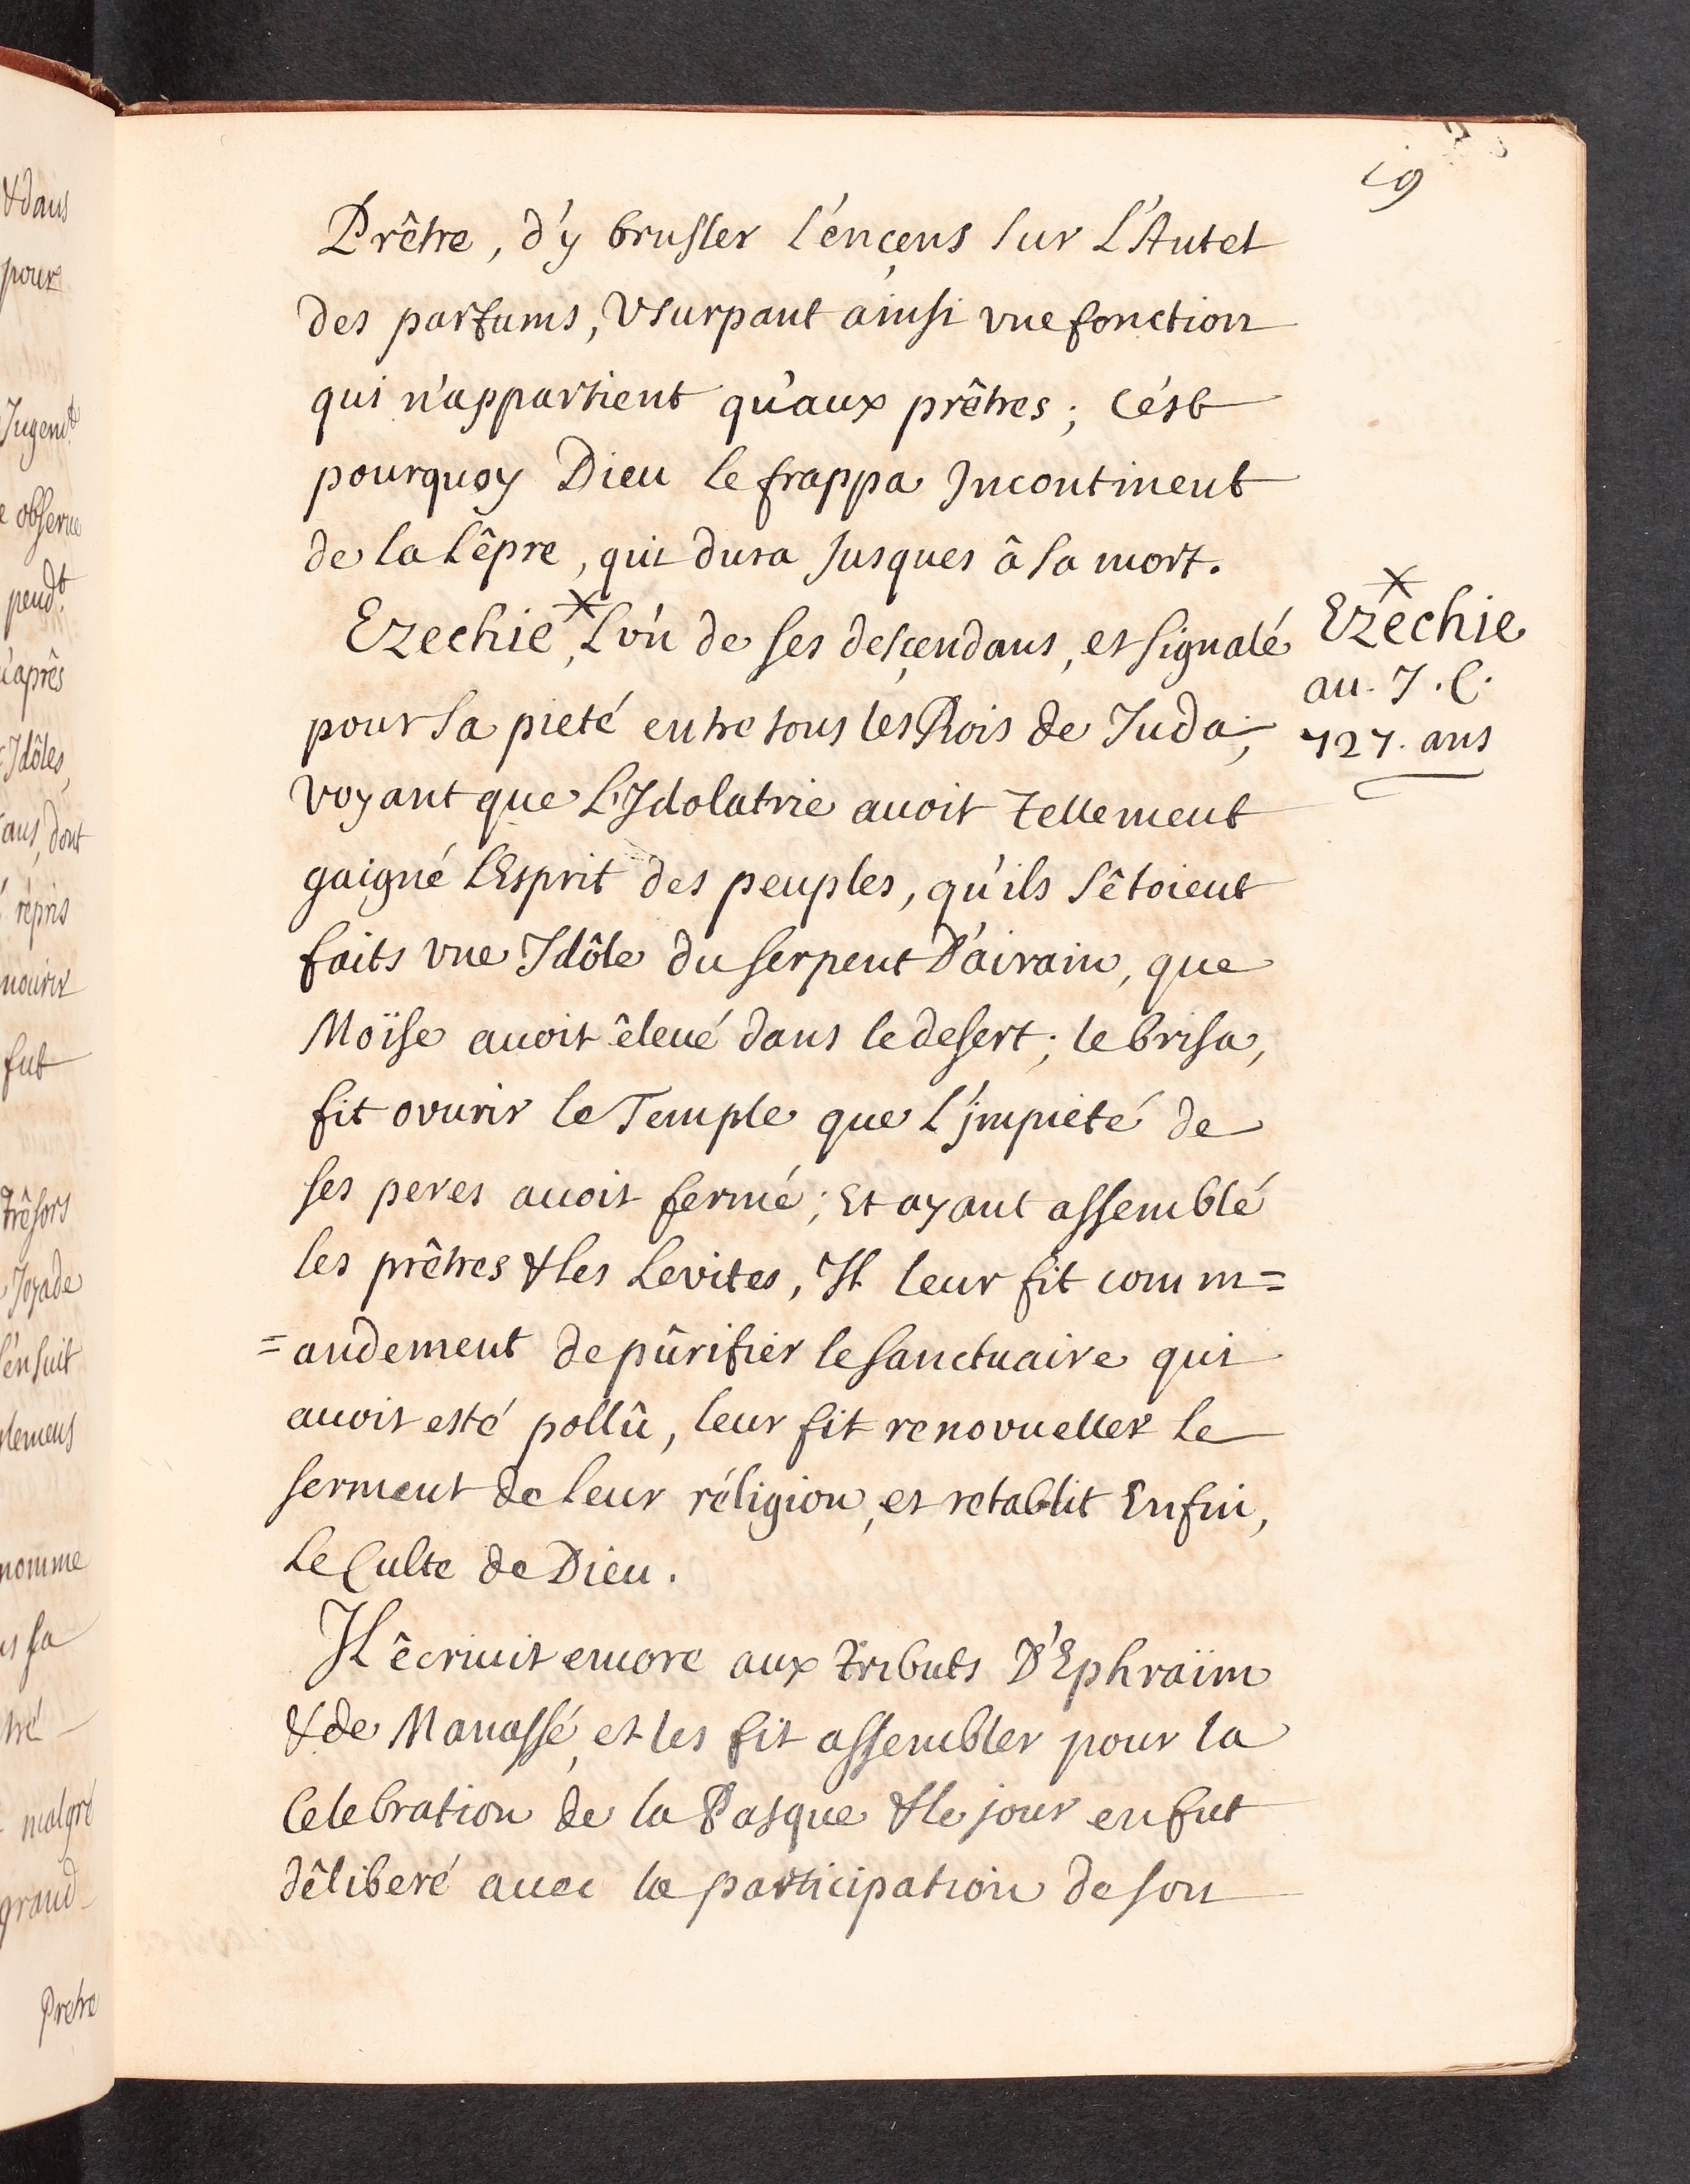 19
Prêtre, d'y brusler l'éncens sur L'Autel
des parfums, Vsurpant ainsi vne fonction
qui n'appartient qu'aux prêtres; C'ést
pourquoy Dieu le frappa Incontinent
de la lêpre, qui dura Jusques â sa mort.
Ezechie, L'vn de ses desçendans, et signalé
pour sa pieté entre tous les Rois de Juda;
voyant que L'Idolatrie auoit tellement
gaigné L'Esprit des peuples, qu'ils s'êtoient
faits vne Idôle du serpent D'airain, que
Moïse auoit êleué dans le desert; le brisa,
fit ovurir le Temple que L'impieté de
ses peres auoit fermé; Et ayant assemblé
les prêtres & les Levites, Il leur fit comm=
=andement de pûrifier le sanctuaire qui
auoit esté pollû, leur fit renovueller le
serment de leur réligion, et retablit Enfin,
Le Culte de Dieu.
Il êcriuit encore aux tributs D'Ephraïm
& de Manassé, et les fit assembler pour la
Celebration de la Pasque & le jour en fut
dêliberé auec la participation de son
Ezechie
au. J. C.
727. ans
& dans
pour
Jugemt
observe
pendt.
après
Idôles,
ans, dont
répris
mourir
fut
trêsors
Joyade
s'ensuit
nomme
sa
malgré
grand
Pretre